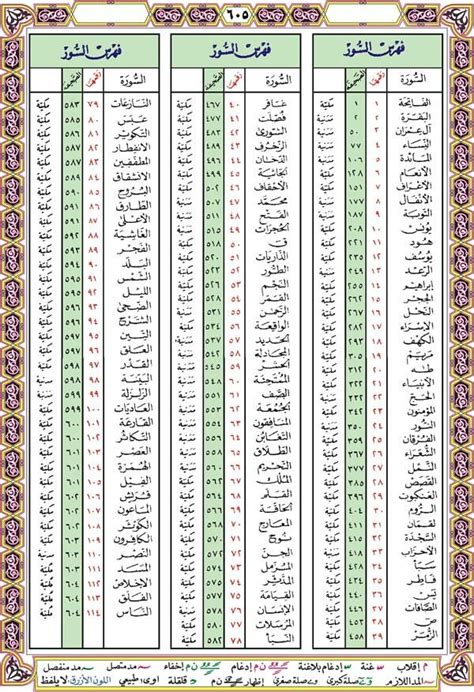 ٦٠٥
فهرس السُّوَر
السُّورَة رقمها الصحيفة
الفَاتِحَة ١ ١ مكيّة
البَقَرَة ٢ ٢ مدنيّة
آل عِمرَان ٣ ٥٠ مدنيّة
النِّسَاء ٤ ٧٧ مدنيّة
المَائدة ٥ ١٠٦ مدنيّة
الأنعَام ٦ ١٢٨ مكيّة
الأعرَاف ٧ ١٥١ مكيّة
الأنفَال ٨ ١٧٧ مدنيّة
التوبَة ٩ ١٨٧ مدنيّة
يُونس ١٠ ٢٠٨ مكيّة
هُود ١١ ٢٢١ مكيّة
يُوسُف ١٢ ٢٣٥ مكيّة
الرّعد ١٣ ٢٤٩ مدنيّة
إبراهيم ١٤ ٢٥٥ مكيّة
الحِجر ١٥ ٢٦٢ مكيّة
النّحل ١٦ ٢٦٧ مكيّة
الإسرَاء ١٧ ٢٨٢ مكيّة
الكهف ١٨ ٢٩٣ مكيّة
مَريَم ١٩ ٣٠٥ مكيّة
طه ٢٠ ٣١٢ مكيّة
الأنبيَاء ٢١ ٣٢٢ مكيّة
الحَج ٢٢ ٣٣٢ مدنيّة
المؤمنون ٢٣ ٣٤٢ مكيّة
النُّور ٢٤ ٣٥٠ مدنيّة
الفُرقان ٢٥ ٣٥٩ مكيّة
الشُّعَرَاء ٢٦ ٣٦٧ مكيّة
النَّمل ٢٧ ٣٧٧ مكيّة
القَصَص ٢٨ ٣٨٥ مكيّة
العَنكبوت ٢٩ ٣٩٦ مكيّة
الرُّوم ٣٠ ٤٠٤ مكيّة
لقمَان ٣١ ٤١١ مكيّة
السَّجْدَة ٣٢ ٤١٥ مكيّة
الأحزاب ٣٣ ٤١٨ مدنيّة
سَبَأ ٣٤ ٤٢٨ مكيّة
فاطِر ٣٥ ٤٣٤ مكيّة
يس ٣٦ ٤٤٠ مكيّة
الصَّافات ٣٧ ٤٤٦ مكيّة
ص ٣٨ ٤٥٣ مكيّة
الزُّمَر ٣٩ ٤٥٨ مكيّة
فهرس السُّوَر
السُّورَة رقمها الصحيفة
غَافر ٤٠ ٤٦٧ مكيّة
فُصِّلَت ٤١ ٤٧٧ مكيّة
الشّورى ٤٢ ٤٨٣ مكيّة
الزّخرُف ٤٣ ٤٨٩ مكيّة
الدّخان ٤٤ ٤٩٦ مكيّة
الجَاثية ٤٥ ٤٩٩ مكيّة
الأحقاف ٤٦ ٥٠٢ مكيّة
محَمّد ٤٧ ٥٠٧ مدنيّة
الفَتْح ٤٨ ٥١١ مدنيّة
الحُجرَات ٤٩ ٥١٥ مدنيّة
ق ٥٠ ٥١٨ مكيّة
الذّاريَات ٥١ ٥٢٠ مكيّة
الطُّور ٥٢ ٥٢٣ مكيّة
النَّجْم ٥٣ ٥٢٦ مكيّة
القَمَر ٥٤ ٥٢٨ مكيّة
الرّحمن ٥٥ ٥٣١ مدنيّة
الواقِعَة ٥٦ ٥٣٤ مكيّة
الحَديد ٥٧ ٥٣٧ مدنيّة
المجَادلة ٥٨ ٥٤٢ مدنيّة
الحَشر ٥٩ ٥٤٥ مدنيّة
المُمتَحنَة ٦٠ ٥٤٩ مدنيّة
الصَّف ٦١ ٥٥١ مدنيّة
الجُمُعَة ٦٢ ٥٥٣ مدنيّة
المنافِقون ٦٣ ٥٥٤ مدنيّة
التغَابُن ٦٤ ٥٥٦ مدنيّة
الطّلاق ٦٥ ٥٥٨ مدنيّة
التّحريم ٦٦ ٥٦٠ مدنيّة
المُلك ٦٧ ٥٦٢ مكيّة
القَلَم ٦٨ ٥٦٤ مكيّة
الحَاقَة ٦٩ ٥٦٦ مكيّة
المعَارج ٧٠ ٥٦٨ مكيّة
نُوح ٧١ ٥٧٠ مكيّة
الجِنّ ٧٢ ٥٧٢ مكيّة
المزّمّل ٧٣ ٥٧٤ مكيّة
المدّثّر ٧٤ ٥٧٥ مكيّة
القِيَامَة ٧٥ ٥٧٧ مكيّة
الإنسَان ٧٦ ٥٧٨ مدنيّة
المُرسَلات ٧٧ ٥٨٠ مكيّة
النّبَأ ٧٨ ٥٨٢ مكيّة
فهرس السُّوَر
السُّورَة رقمها الصحيفة
النّازعَات ٧٩ ٥٨٣ مكيّة
عَبَسَ ٨٠ ٥٨٥ مكيّة
التّكوير ٨١ ٥٨٦ مكيّة
الانفِطار ٨٢ ٥٨٧ مكيّة
المطفّفِين ٨٣ ٥٨٧ مكيّة
الانشقاق ٨٤ ٥٨٩ مكيّة
البُروج ٨٥ ٥٩٠ مكيّة
الطّارق ٨٦ ٥٩١ مكيّة
الأعلى ٨٧ ٥٩١ مكيّة
الغَاشِيَة ٨٨ ٥٩٢ مكيّة
الفَجْر ٨٩ ٥٩٣ مكيّة
البَلَد ٩٠ ٥٩٤ مكيّة
الشّمْس ٩١ ٥٩٥ مكيّة
الليْل ٩٢ ٥٩٥ مكيّة
الضّحى ٩٣ ٥٩٦ مكيّة
الشّرْح ٩٤ ٥٩٦ مكيّة
التّين ٩٥ ٥٩٧ مكيّة
العَلَق ٩٦ ٥٩٧ مكيّة
القَدْر ٩٧ ٥٩٨ مكيّة
البَيّنَة ٩٨ ٥٩٨ مدنيّة
الزّلزَلة ٩٩ ٥٩٩ مدنيّة
العَاديَات ١٠٠ ٥٩٩ مكيّة
القارعَة ١٠١ ٦٠٠ مكيّة
التّكاثُر ١٠٢ ٦٠٠ مكيّة
العَصْر ١٠٣ ٦٠١ مكيّة
الهُمَزة ١٠٤ ٦٠١ مكيّة
الفِيل ١٠٥ ٦٠١ مكيّة
قُرَيش ١٠٦ ٦٠٢ مكيّة
الماعُون ١٠٧ ٦٠٢ مكيّة
الكَوْثَر ١٠٨ ٦٠٢ مكيّة
الكافِرون ١٠٩ ٦٠٣ مكيّة
النّصْر ١١٠ ٦٠٣ مدنيّة
المسَد ١١١ ٦٠٣ مكيّة
الإخلاص ١١٢ ٦٠٤ مكيّة
الفَلَق ١١٣ ٦٠٤ مكيّة
النّاس ١١٤ ٦٠٤ مكيّة
م إقلاب س غنة س إدغام بلاغنة ن م إدغام ن م إخفاء مد متصل مد منفصل
المد اللازم صلة كبرى صلة صغرى إظهار ن م قلقلة اوى طبيعي اللون الأزرق لا يلفظ